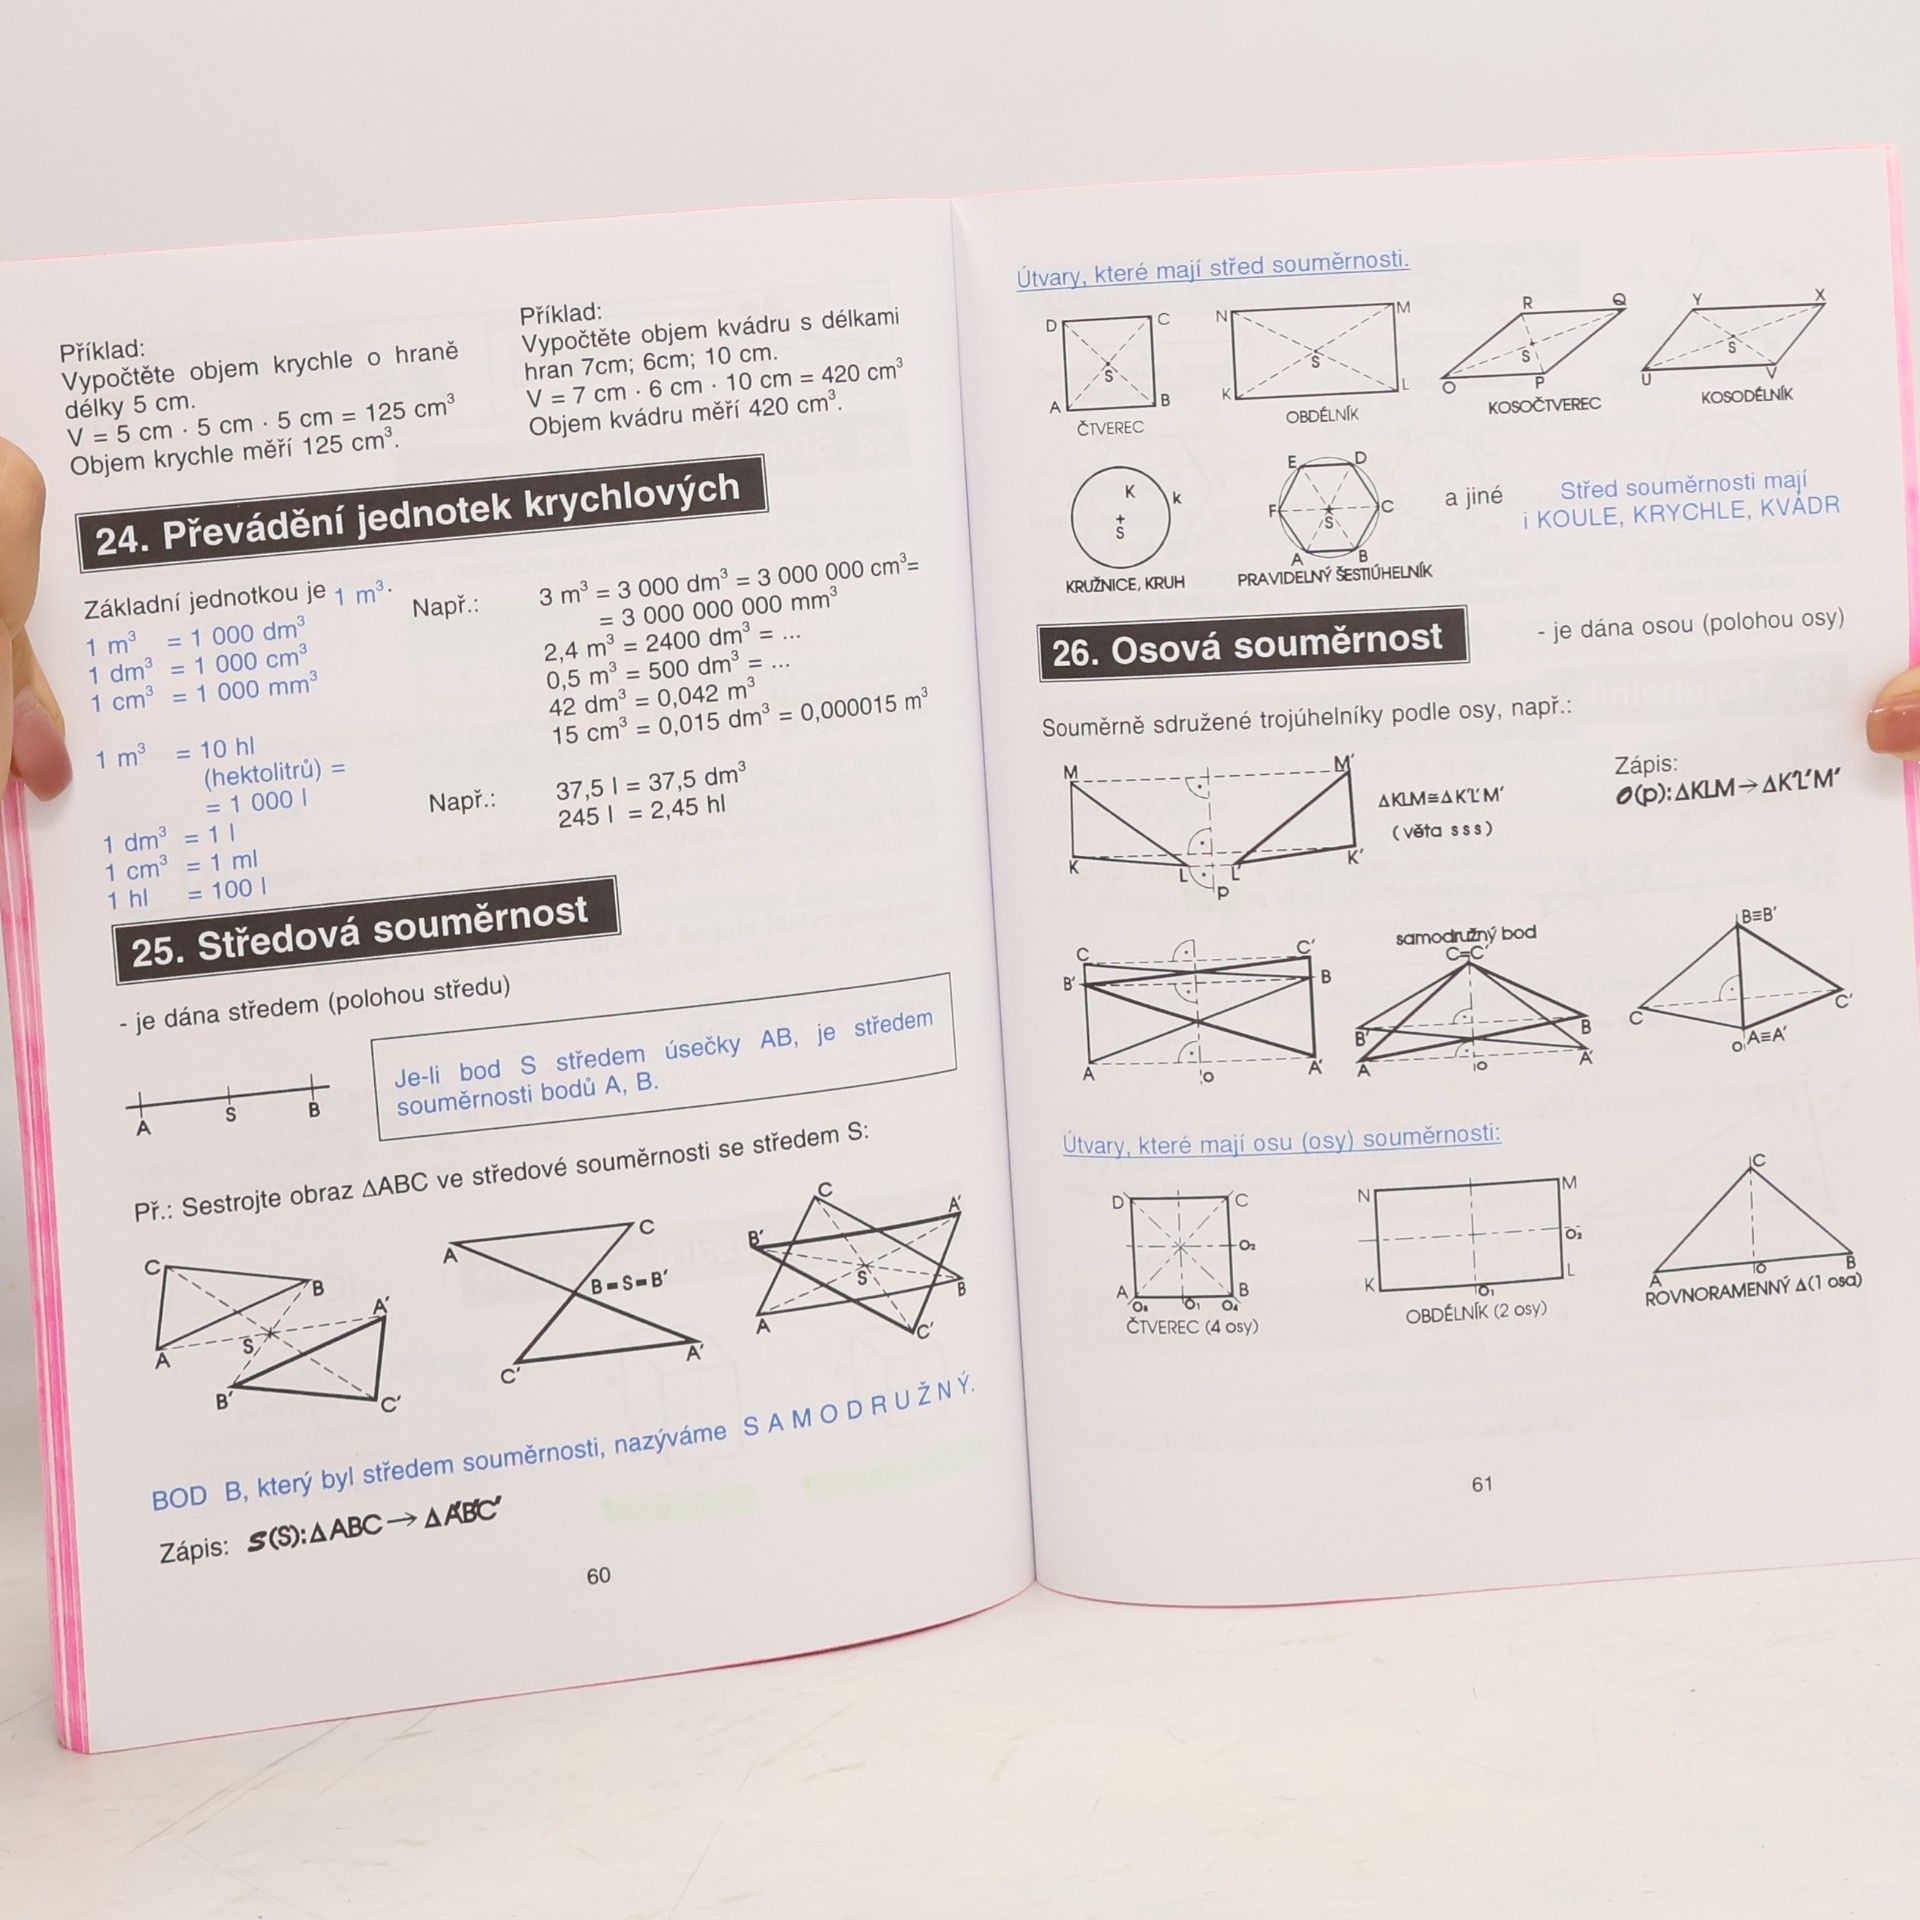 Příklad:
Vypočtěte objem krychle o hraně
délky 5 cm.
V = 5 cm · 5 cm · 5 cm = 125 cm³
Objem krychle měří 125 cm³.
Příklad:
Vypočtěte objem kvádru s délkami
hran 7cm; 6cm; 10 cm.
V = 7 cm · 6 cm · 10 cm = 420 cm³
Objem kvádru měří 420 cm³.
24. Převádění jednotek krychlových
Základní jednotkou je 1 m³.
1 m³ = 1 000 dm³
1 dm³ = 1 000 cm³
1 cm³ = 1 000 mm³
Např.:
3 m³ = 3 000 dm³ = 3 000 000 cm³=
= 3 000 000 000 mm³
2,4 m³ = 2400 dm³ = ...
0,5 m³ = 500 dm³ = ...
42 dm³ = 0,042 m³
15 cm³ = 0,015 dm³ = 0,000015 m³
1 m³ = 10 hl
(hektolitrů) =
= 1 000 l
1 dm³ = 1 l
1 cm³ = 1 ml
1 hl = 100 l
Např.:
37,5 l = 37,5 dm³
245 l = 2,45 hl
25. Středová souměrnost
- je dána středem (polohou středu)
A S B
Je-li bod S středem úsečky AB, je středem
souměrnosti bodů A, B.
Př.: Sestrojte obraz ΔABC ve středové souměrnosti se středem S:
C B A' A S B' C'
A C B=S=B' C' A'
C B' A' S B A C'
BOD B, který byl středem souměrnosti, nazýváme S A M O D R U Ž N Ý.
Zápis: S(S):ΔABC→ΔA'B'C'
60
Útvary, které mají střed souměrnosti.
D C S A B
ČTVEREC
N M S K L
OBDÉLNÍK
R Q S O P
KOSOČTVEREC
Y X S U V
KOSODÉLNÍK
K k S
KRUŽNICE, KRUH
E D F C S A B
PRAVIDELNÝ ŠESTIÚHELNÍK
a jiné
Střed souměrnosti mají
i KOULE, KRYCHLE, KVÁDR
26. Osová souměrnost
- je dána osou (polohou osy)
Souměrně sdružené trojúhelníky podle osy, např.:
M M' K L L' K' p
ΔKLM≅ΔK'L'M'
(věta s s s)
Zápis:
O(p):ΔKLM→ΔK'L'M'
C C' B' B A o A'
samodružný bod
C=C'
B' B A o A'
B≡B'
C C'
o A≡A'
Útvary, které mají osu (osy) souměrnosti:
D C O₂ A B O₁ O₄
ČTVEREC (4 osy)
N M O₂ K L O₁
OBDÉLNÍK (2 osy)
C A o B
ROVNORAMENNÝ Δ(1 osa)
61